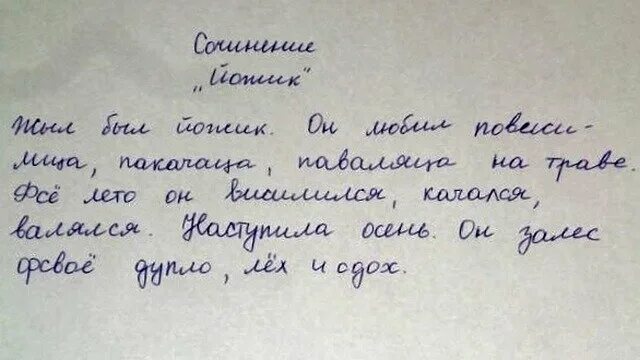 Сочинение
„Йожик"
Жыл был йожик. Он любил повеси-
лица, пакачаца, паваляца на траве.
Фсё лето он висилился, качался,
валялся. Наступила осень. Он залес
фсваё дупло, лёх и одох.